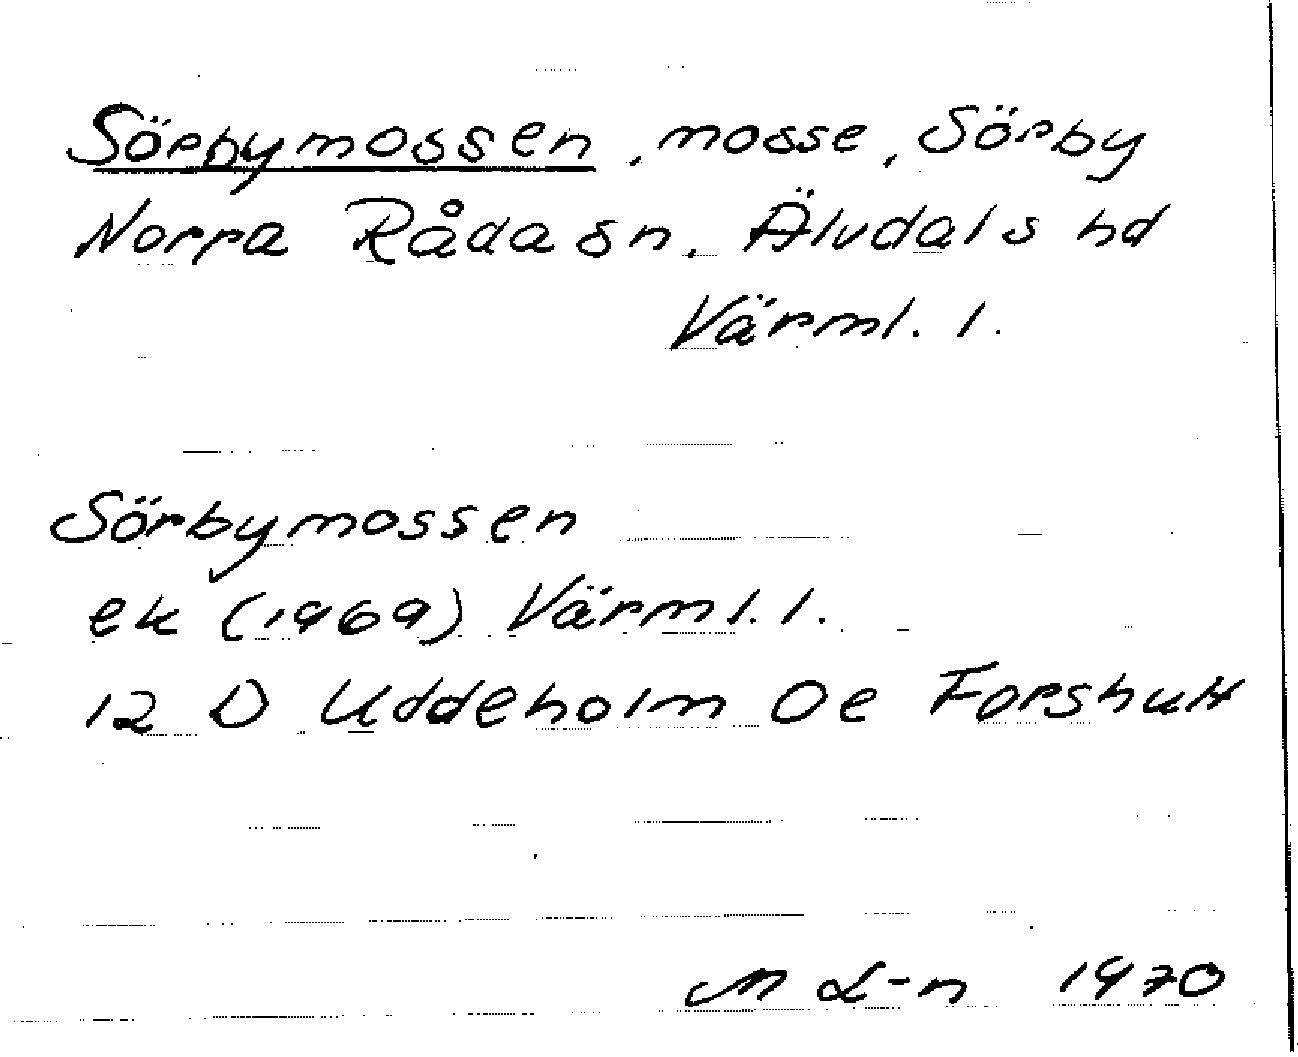 Sörbymossen, mosse, Sörby
Norra Råda sn, Älvdals hd
Värml. l.
Sörbymossen
ek (1969) Värml. l.
12 D Uddeholm 0e Forshult
M L-n 1970